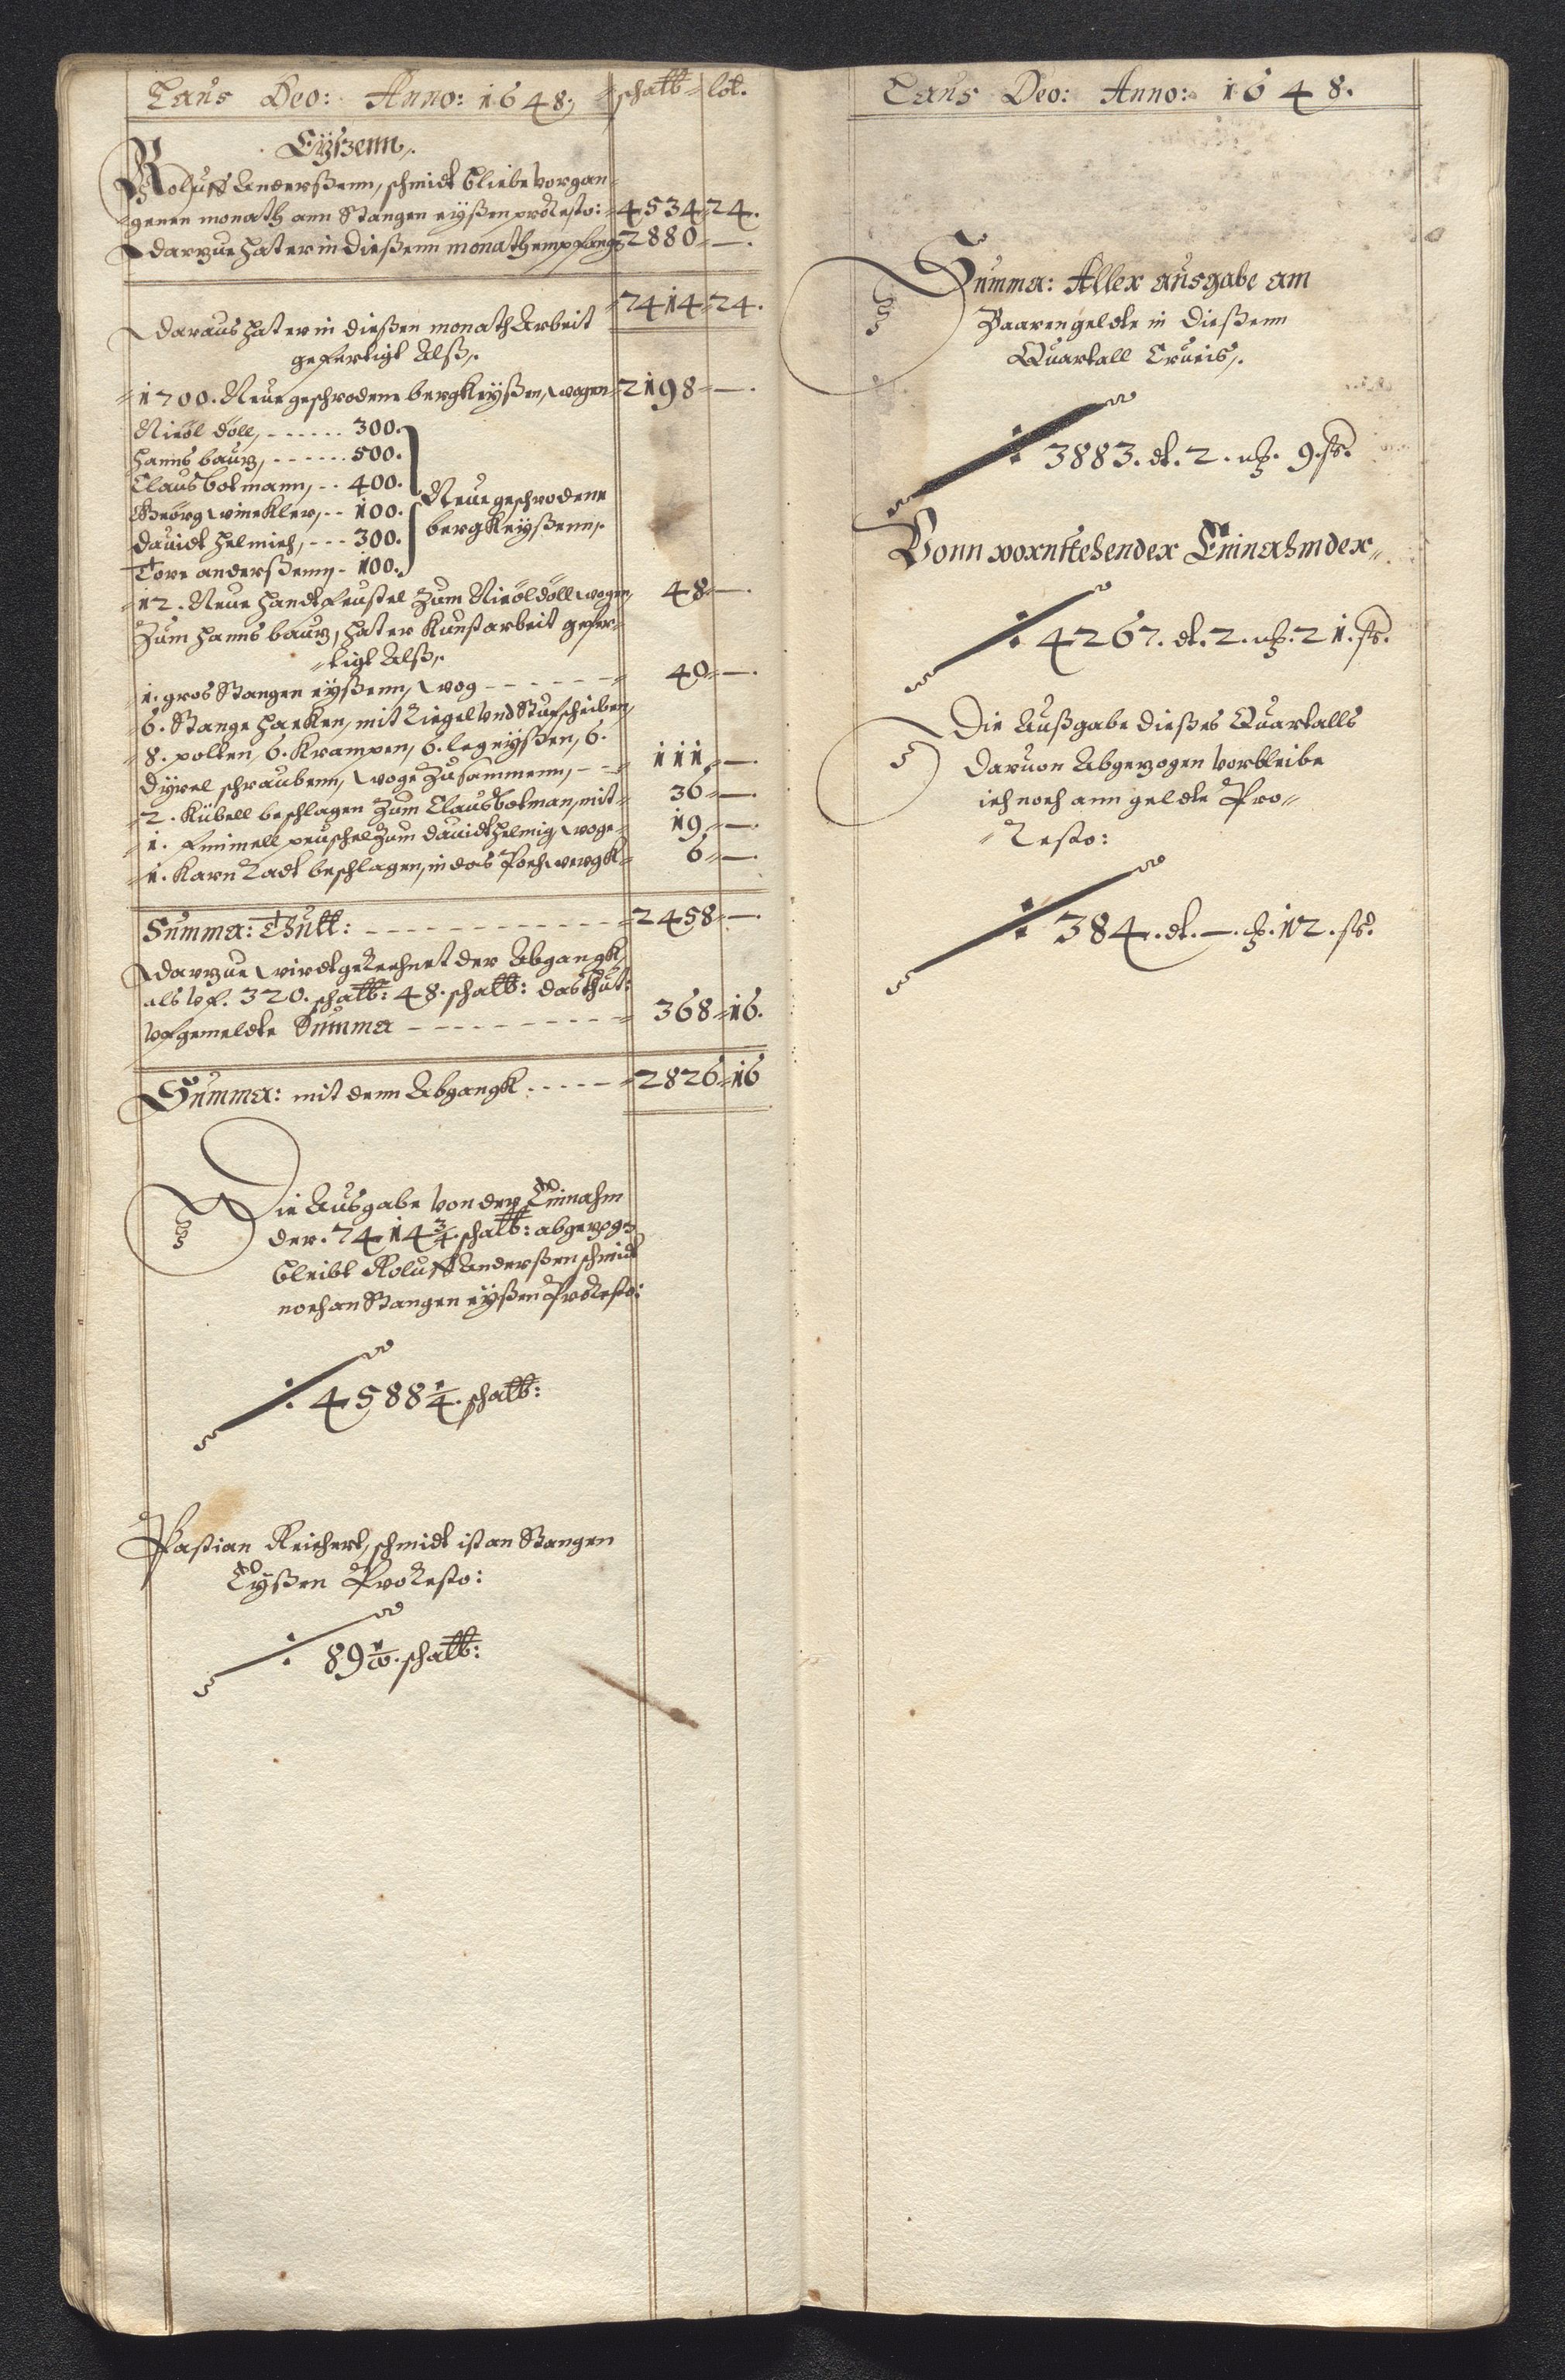 Laus Deo: Anno: 1648, schalb lot.
Eyszenn,
Roluff Anderßenn, schmidt bliebe vorgan-
genen monath ann Stangen eyßen pro Resto: 4534 24.
darzue hat er in dießenn monath empfang 2880 —.
7414 24.
daraus hat er in dießen monath Arbeit
gefertigt Alß,
1700. Neue geschrodene bergkeyßen, wogen 2198 —.
Nicol döll, ------ 300.
Hanns bautz, ------ 500.
Claus botmann, -- 400.
Georg winckler, -- 100.
Dauidt Helmich, --- 300.
Tore anderßenn, - 100.
Neue geschrodene
bergkeyßenn,
12. Neue handtfeustel zum Nicol döll wogen, 48 —.
Zum Hanns bautz, hat er Kunstarbeit gefer-
tigt Alß,
1. gros Stangen eyßenn, wog ------ 40 —.
6. Stange hacken, mit Riegel vnd scheiben,
8. polten, 6. Krampen, 6. legeyßen, 6.
schraubenn, woge zusammenn, -- 111 —.
2. Kübell beschlagen zum Claus botman, mit 36 —.
1. fimmell peuschel zum dauidt Helmig, woge 19 —.
1. Karn Radt beschlagen, in das Pochwergk 6 —.
Summa: Thutt: ------------ 2458 —.
darzue wirdt gerechnet der Abgangk,
als vf. 320. schalb: 48. schalb: das thut:
vfgemeldte Summa ---------- 368 16.
Summa: mit denn Abgangk ----- 2826 16
Die Ausgabe von der Einnahm
der. 7414 3/4. schalb: abgezogen
bleibt Roluff Anderßen schmidt
noch an Stangen eyßen Pro Resto:
4588 1/4. schalb:
Pastian Reichert, schmidt ist an Stangen
Eyßen Pro Resto:
89 1/10. schalb:
Laus Deo: Anno: 1648.
Summa: Aller ausgabe am
Baaren geldte in dießenn
Quartall Crucis,
3883. dt. 2. 9. ß.
Vonn vornstehender Einnahm der
4267. dt. 2. 21. ß.
Die Außgabe dießes Quartalls
daruon Abgezogen vorbleibe
ich noch ann geldte Pro
Resto:
384. dt. —. 12. ß.